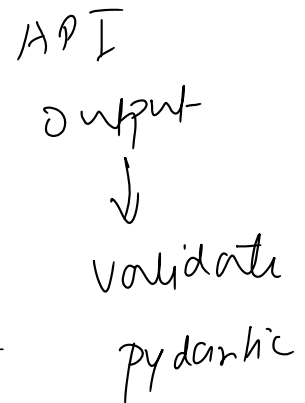 API
output
↓
validate
pydantic